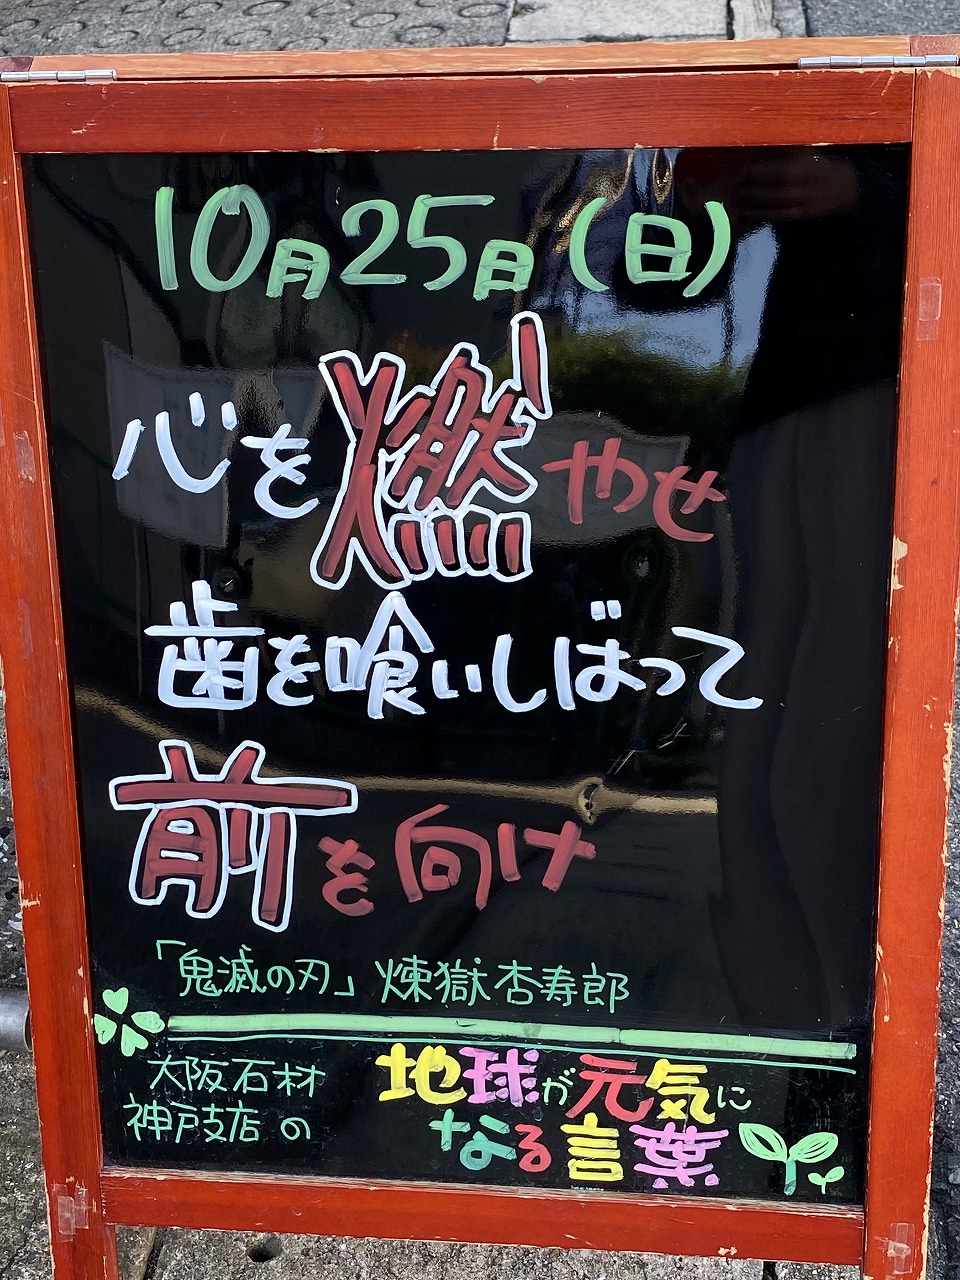 10月25日(日)
心を燃やせ
歯を喰いしばって
前を向け
「鬼滅の刃」煉獄杏寿郎
大阪石材
神戸支店の
地球が元気に
なる言葉